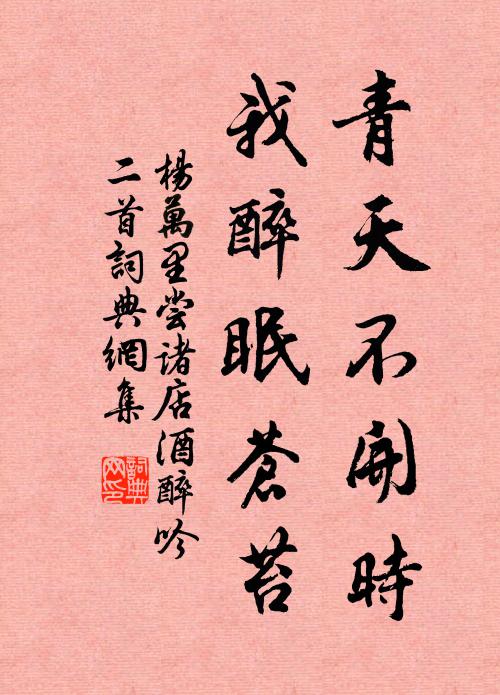 青天不開時
我醉眠蒼苔
楊萬里嘗諸店酒醉吟
二首詞典網集
詞典
网印